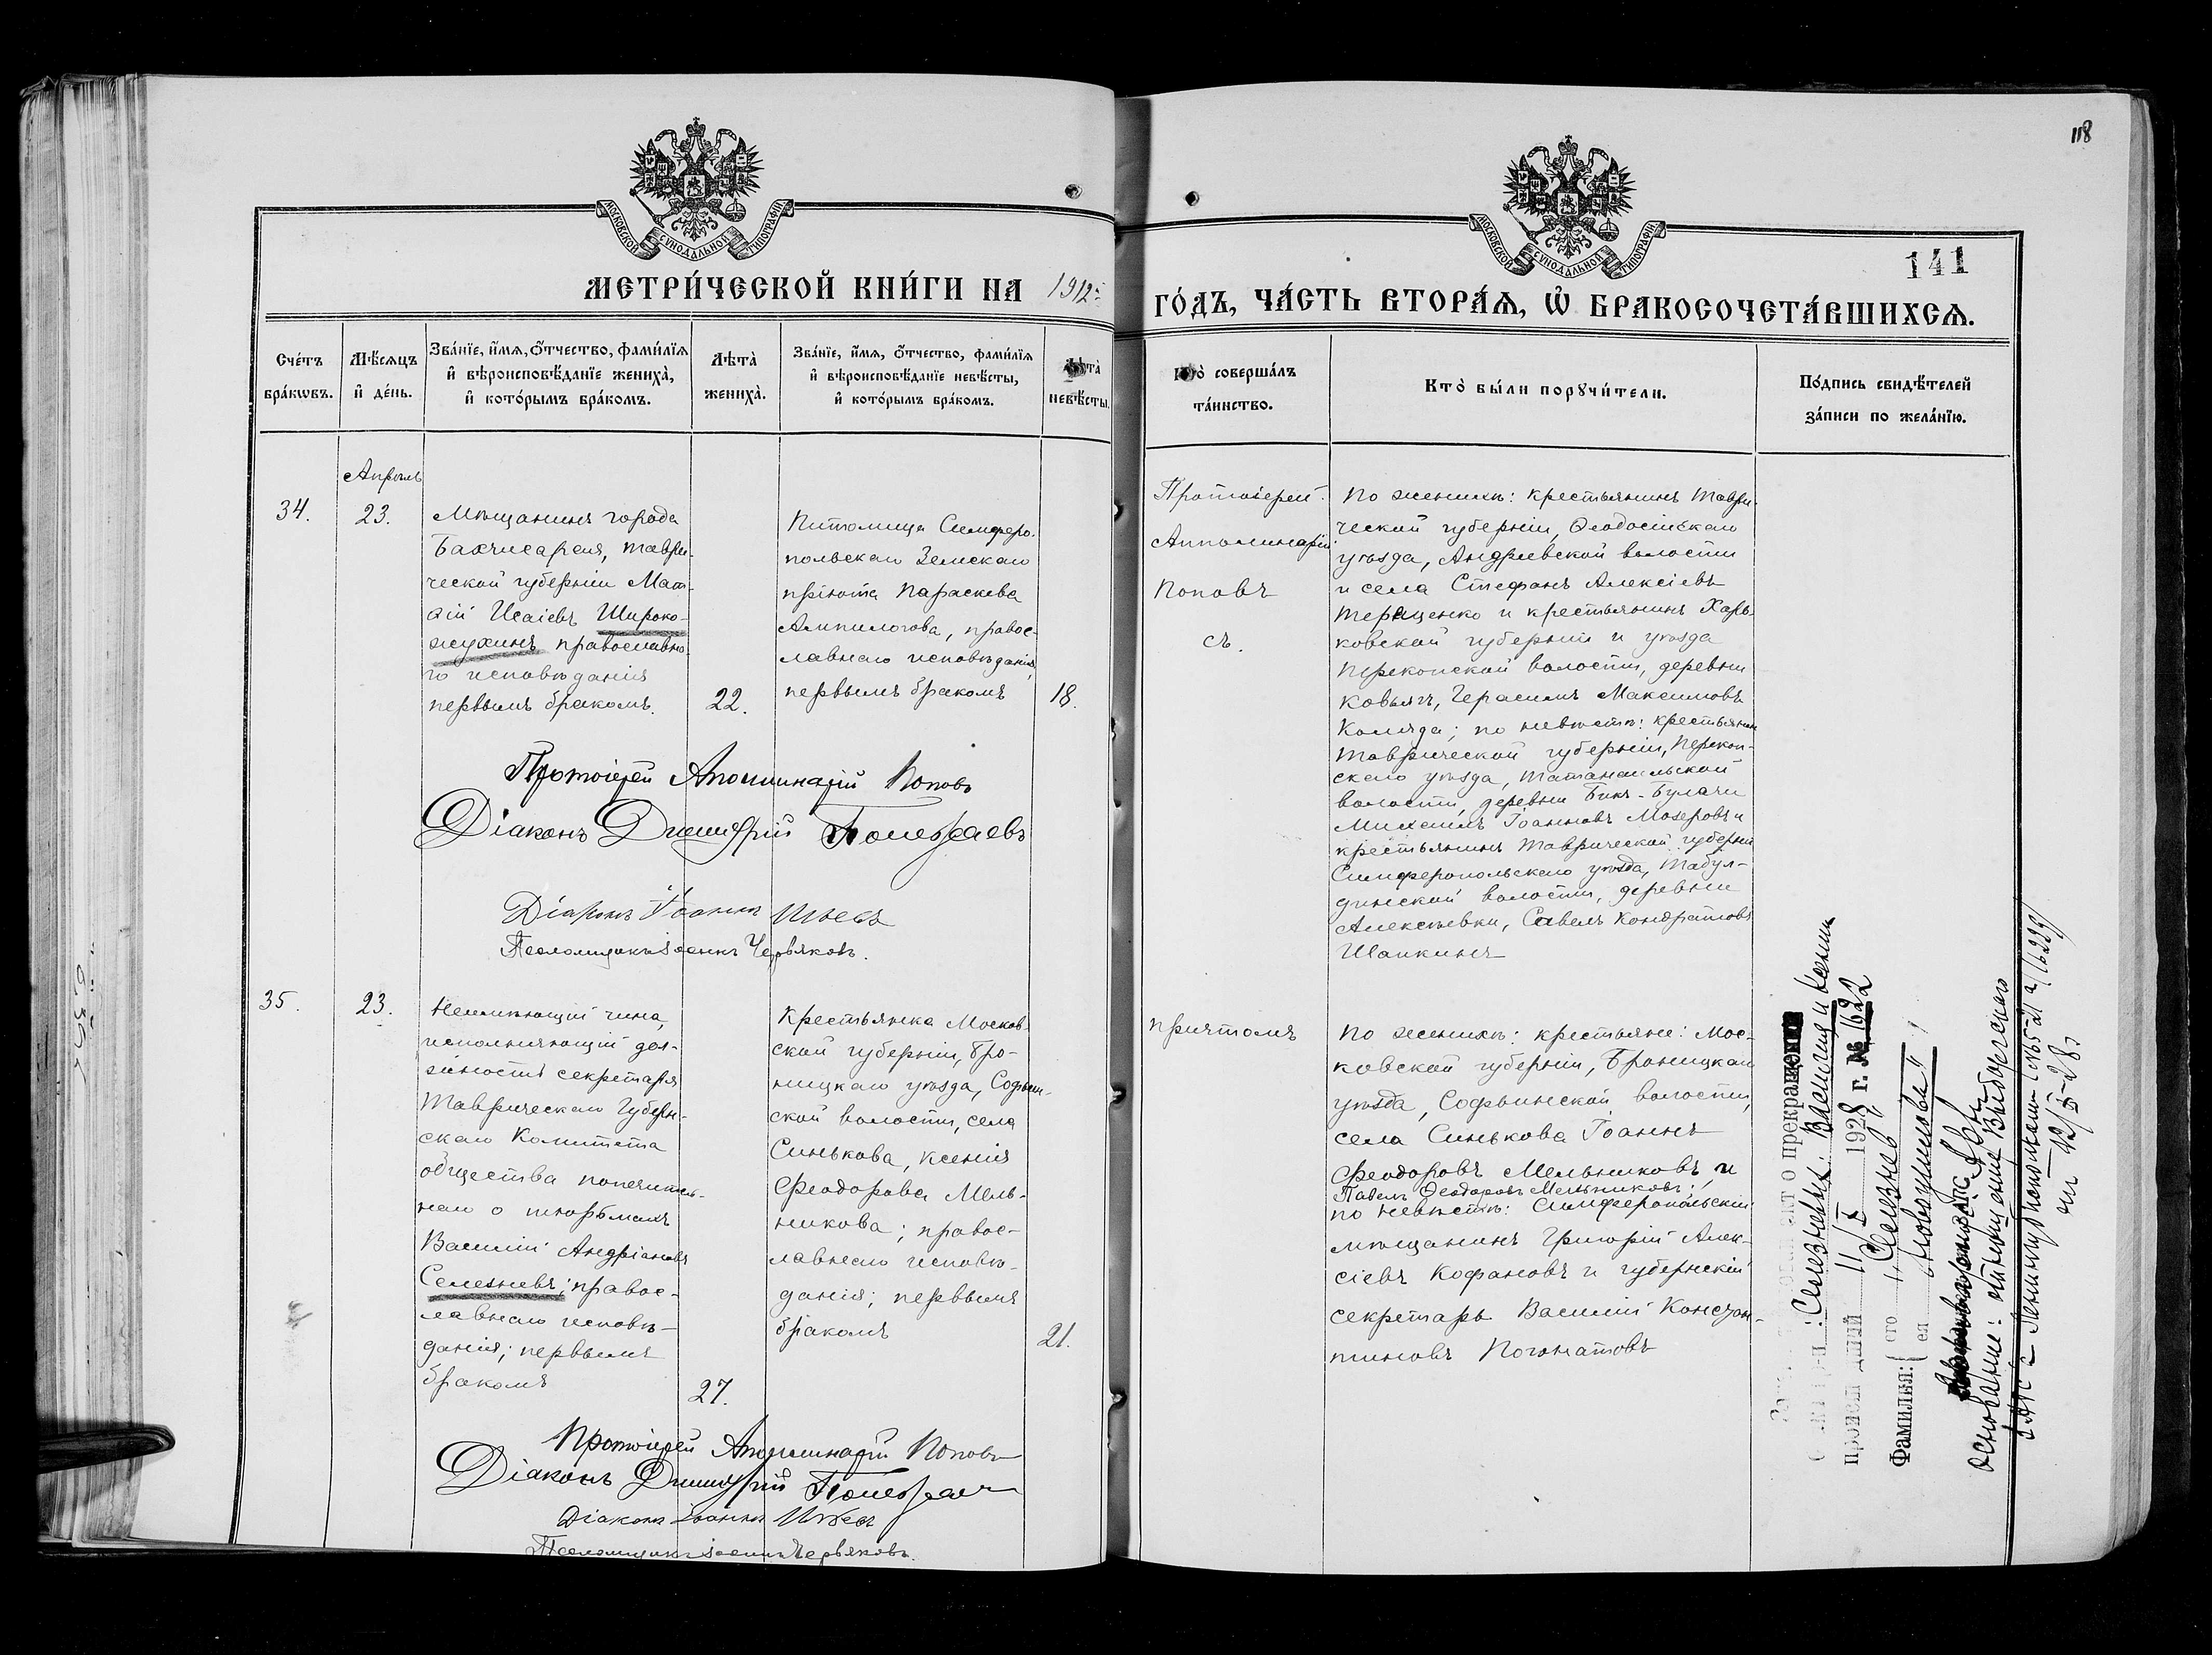 118
141
МОСКОВСКОЙ СУНОДАЛЬНОЙ ТИПОГРАФІИ
МОСКОВСКОЙ СУНОДАЛЬНОЙ ТИПОГРАФІИ
МЕТРИ́ЧЕСКОЙ КНИ́ГИ НА 1912
ГО́ДЪ, ЧА́СТЬ ВТОРА́Ѧ, Ѡ҆ БРАКОСОЧЕТА́ВШИХСѦ.
Сче́тъ
бра́кѡвъ.
Мѣ́сѧцъ
и҆ де́нь.
Зва́нїе, и҆́мѧ, ѻ҆́тчество, фами́лїѧ
и҆ вѣроисповѣ́данїе жениха̀,
и҆ кото́рымъ бра́комъ.
Лѣта̀
жениха̀.
Зва́нїе, и҆́мѧ, ѻ҆́тчество, фами́лїѧ
и҆ вѣроисповѣ́данїе невѣ́сты,
и҆ кото́рымъ бра́комъ.
Лѣта̀
невѣ́сты.
Кто̀ соверша́лъ
та́инство.
Кто̀ бы́ли порꙋчи́тели.
По́дпись свидѣ́телей
за́писи по жела́нїю.
Апрѣль
34.
23.
Мѣщанинъ города
Бахчисарая, Таври-
ческой губерніи Мат-
ѳій Исаіевъ Широко-
жухинъ православна-
го исповѣданія
первымъ бракомъ.
22.
Питомица Симферо-
польскаго Земскаго
пріюта Параскева
Ампилогова, правос-
лавнаго исповѣданія,
первымъ бракомъ
18.
Протоіерей
Апполинарій
Поповъ
съ
По женихѣ: крестьянинъ Таври-
ческой губерніи, Ѳеодосійскаго
уѣзда, Андреевской волости
и села Стефанъ Алексіевъ
Терещенко и крестьянинъ Харь-
ковской губерніи и уѣзда
Перекопской волости, деревни
Ковягъ, Герасимъ Максимовъ
Коляда; по невѣстѣ: крестьянин
Таврической губерніи, Перекоп-
скаго уѣзда,
волости, деревни Бикъ-Булачи
Михаилъ Іоанновъ Мазеровъ и
крестьянинъ Таврической губерніи
Симферопольскаго уѣзда, Табул-
динской волости, деревни
Алексѣевки, Савелъ Кондратовъ
Шапкинъ
Протоіерей Аполлинарій Поповъ
Діаконъ Димитрій
Діаконъ Іоаннъ
Псаломщикъ Іоаннъ Червяковъ.
35.
23.
Неимѣющій чина,
исполняющій дол-
жность секретаря
Таврическаго Губерн-
скаго Комитета
общества попечитель-
наго о тюрьмахъ
Василій Андріановъ
Селезневъ; правос-
лавнаго исповѣ-
данія; первымъ
бракомъ
27.
Крестьянка Москов-
ской губерніи, Бро-
ницкаго уѣзда, Софьин-
ской волости, села
Синькова, Ксенія
Феодорова Мель-
никова; правос-
лавнаго исповѣ-
данія; первымъ
бракомъ
21.
причтомъ
По женихѣ: крестьяне: Мос-
ковской губерніи, Броницкаго
уѣзда, Софьинской волости,
села Синькова Іоаннъ
Феодоровъ Мельниковъ, и
Павелъ Ѳеодоровъ Мельниковъ;
по невѣстѣ: Симферопольскій
мѣщанинъ Григорій Алек-
сіевъ Кофановъ и губернскій
секретарь Василій Констан-
тиновъ
Протоіерей Аполлинарій Поповъ
Діаконъ Димитрій
Діаконъ Іоаннъ
Псаломщикъ Іоаннъ Червяковъ.
акт о прекращении
Селезневых Василия и Ксении
11/X 1928 г. № 1622
Фамилия: его „Селезнев
ея
Основание: Выборгского